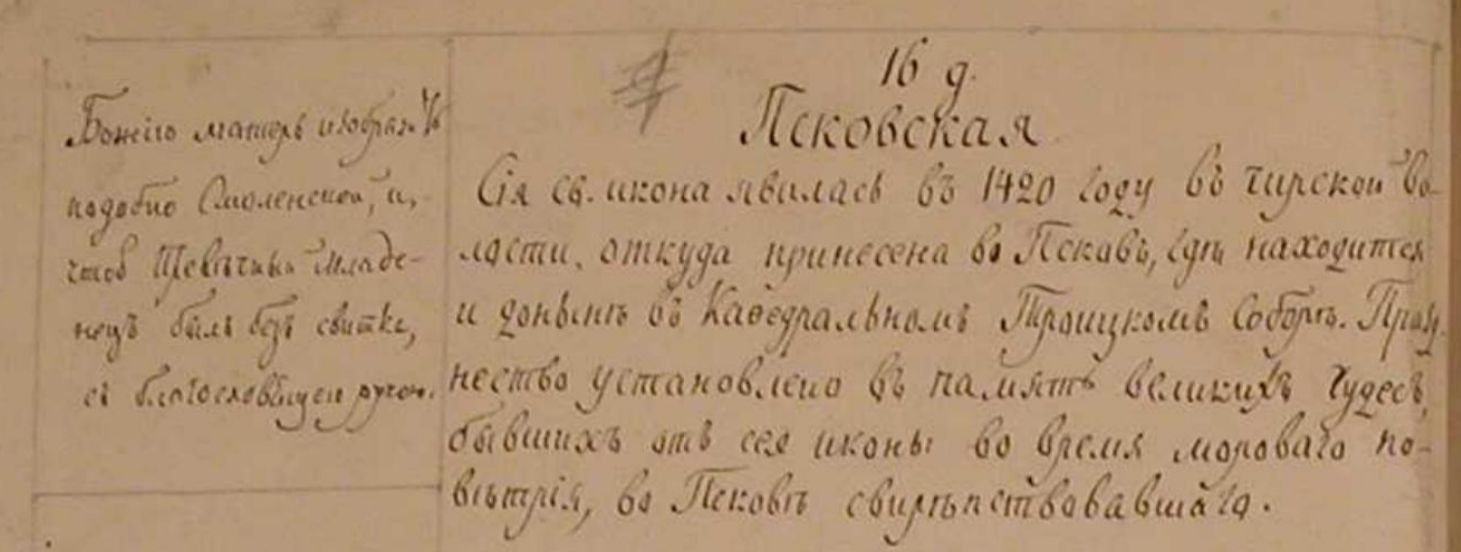 Божіго матерь изображ.
подобно Смоленской, и,
чтоб Превѣчный Младе-
нецъ былъ безъ свитка,
съ благословящею рукою.
16 д.
Псковская
Сія св. икона явилась въ 1420 году въ чирской во-
лости, откуда принесена во Псковъ, гдѣ находится
и донынѣ въ Каѳедральномъ Троицкомъ Соборѣ. Празд-
нество установлено въ память великихъ чудесъ,
бывшихъ отъ сея иконы во время мороваго по-
вѣтрія, во Псковѣ свирѣпствовавшаго.